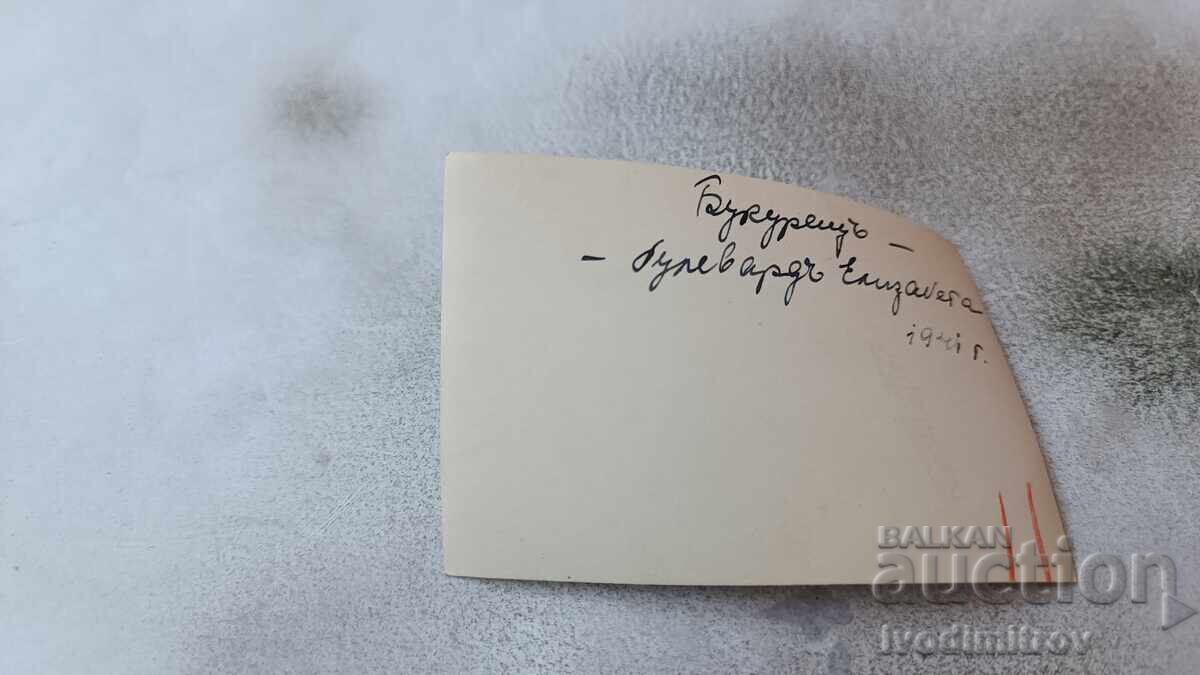 Букурещъ –
– булевардъ Елизабета
1941 г.
BALKAN
auction
ivodimitrov